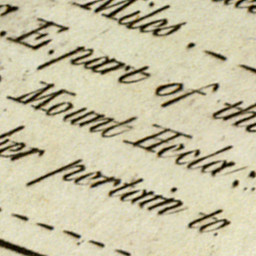 Miles. - -
. E. part of the
Mount Hecla:
her pertain to